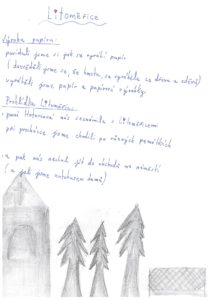 Litoměřice
Výroba papíru:
povídali jsme si jak se vyrábí papír
(dozvěděli jsme se, že hmota, se vyráběla ze dřeva a
vyráběli jsme papír a papírové výrobky
Prohlídka Litoměřic:
paní nás seznámila s Litoměřicemi
při procházce jsme chodili po různých památkách
a pak nás nechali jít do obchodů na náměstí
(a pak jsme autobusem domů)